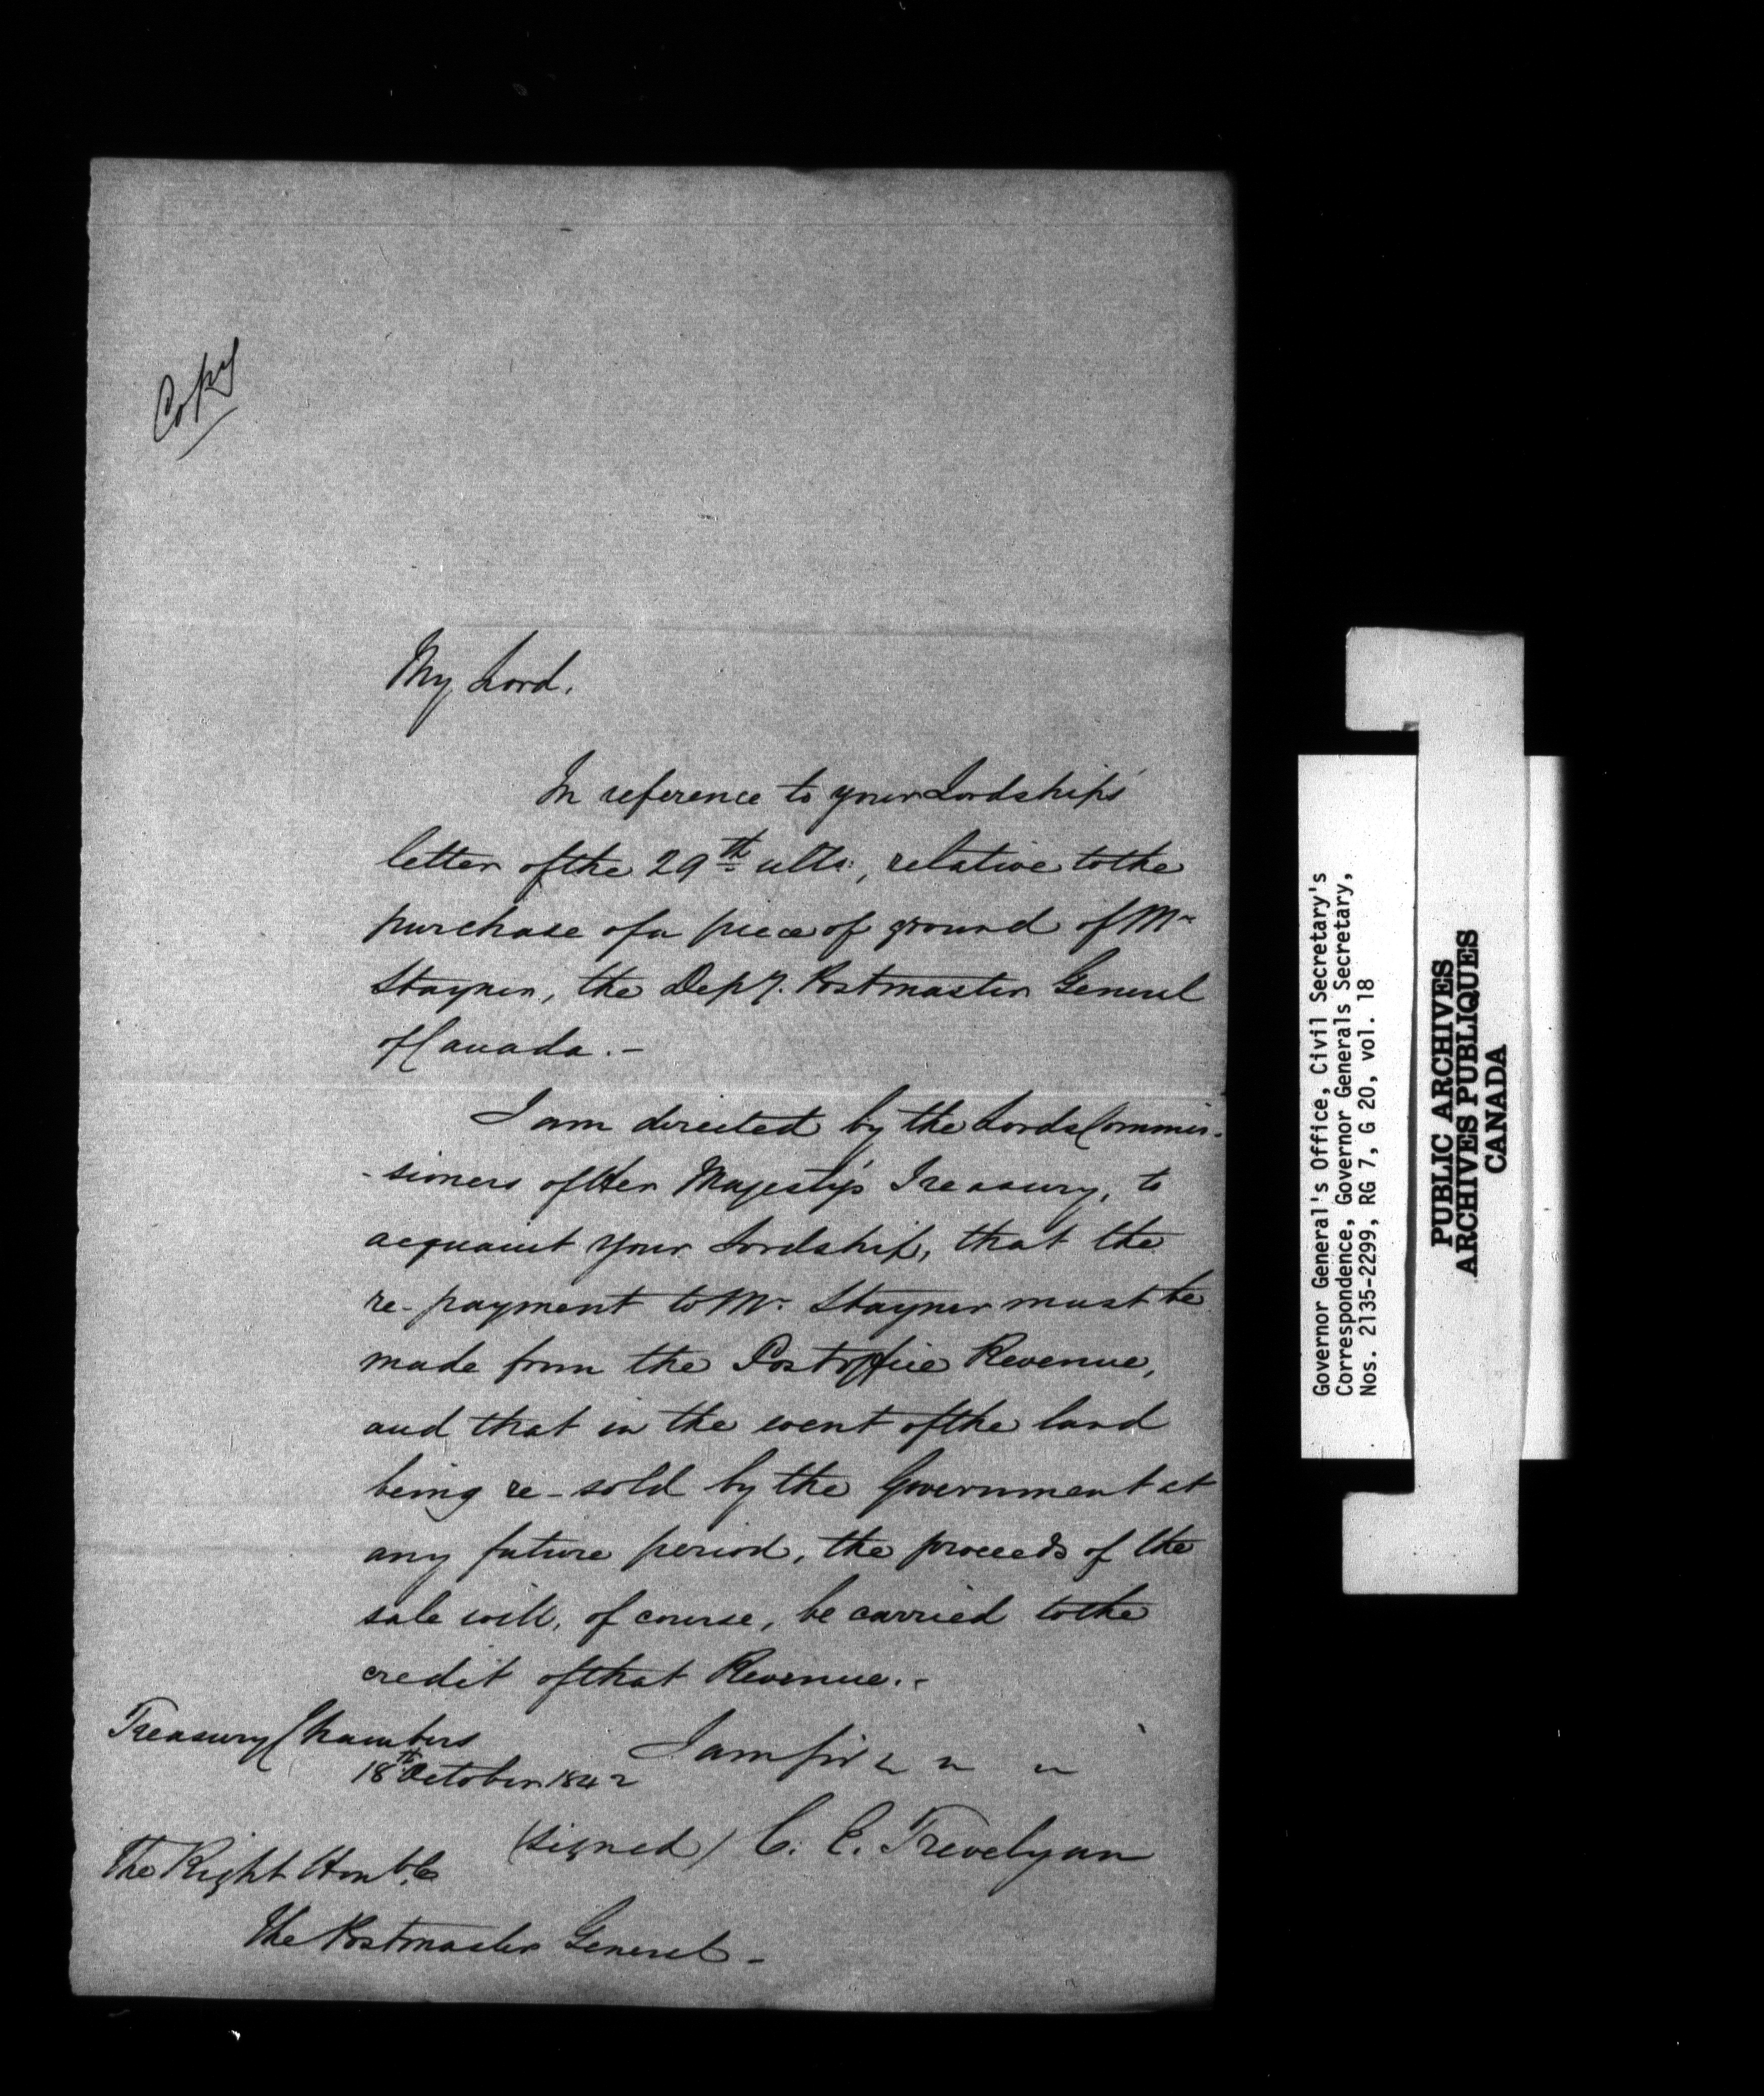 Copy
My Lord.
In reference to your Lordship's
letter of the 29th ulto:, relative to the
purchase of a piece of ground of Mr
Stayner, the Depy. Postmaster General
of Canada.-
I am directed by the Lords Commis-
-sioners of Her Majesty's Treasury, to
acquaint your Lordship, that the
re-payment to Mr. Stayner must be
made from the Postoffice Revenue,
and that in the event of the land
being re-sold by the Government at
any future period, the proceeds of the
sale will, of course, be carried to the
credit of that Revenue.-
I am
Treasury Chambers
18th October 1842
(signed) C. E. Trevelyan
The Right Honble
The Postmaster General-
Governor General's Office, Civil Secretary's
Correspondence, Governor Generals Secretary,
Nos. 2135-2299, RG 7, G 20, vol. 18
PUBLIC ARCHIVES
ARCHIVES PUBLIQUES
CANADA